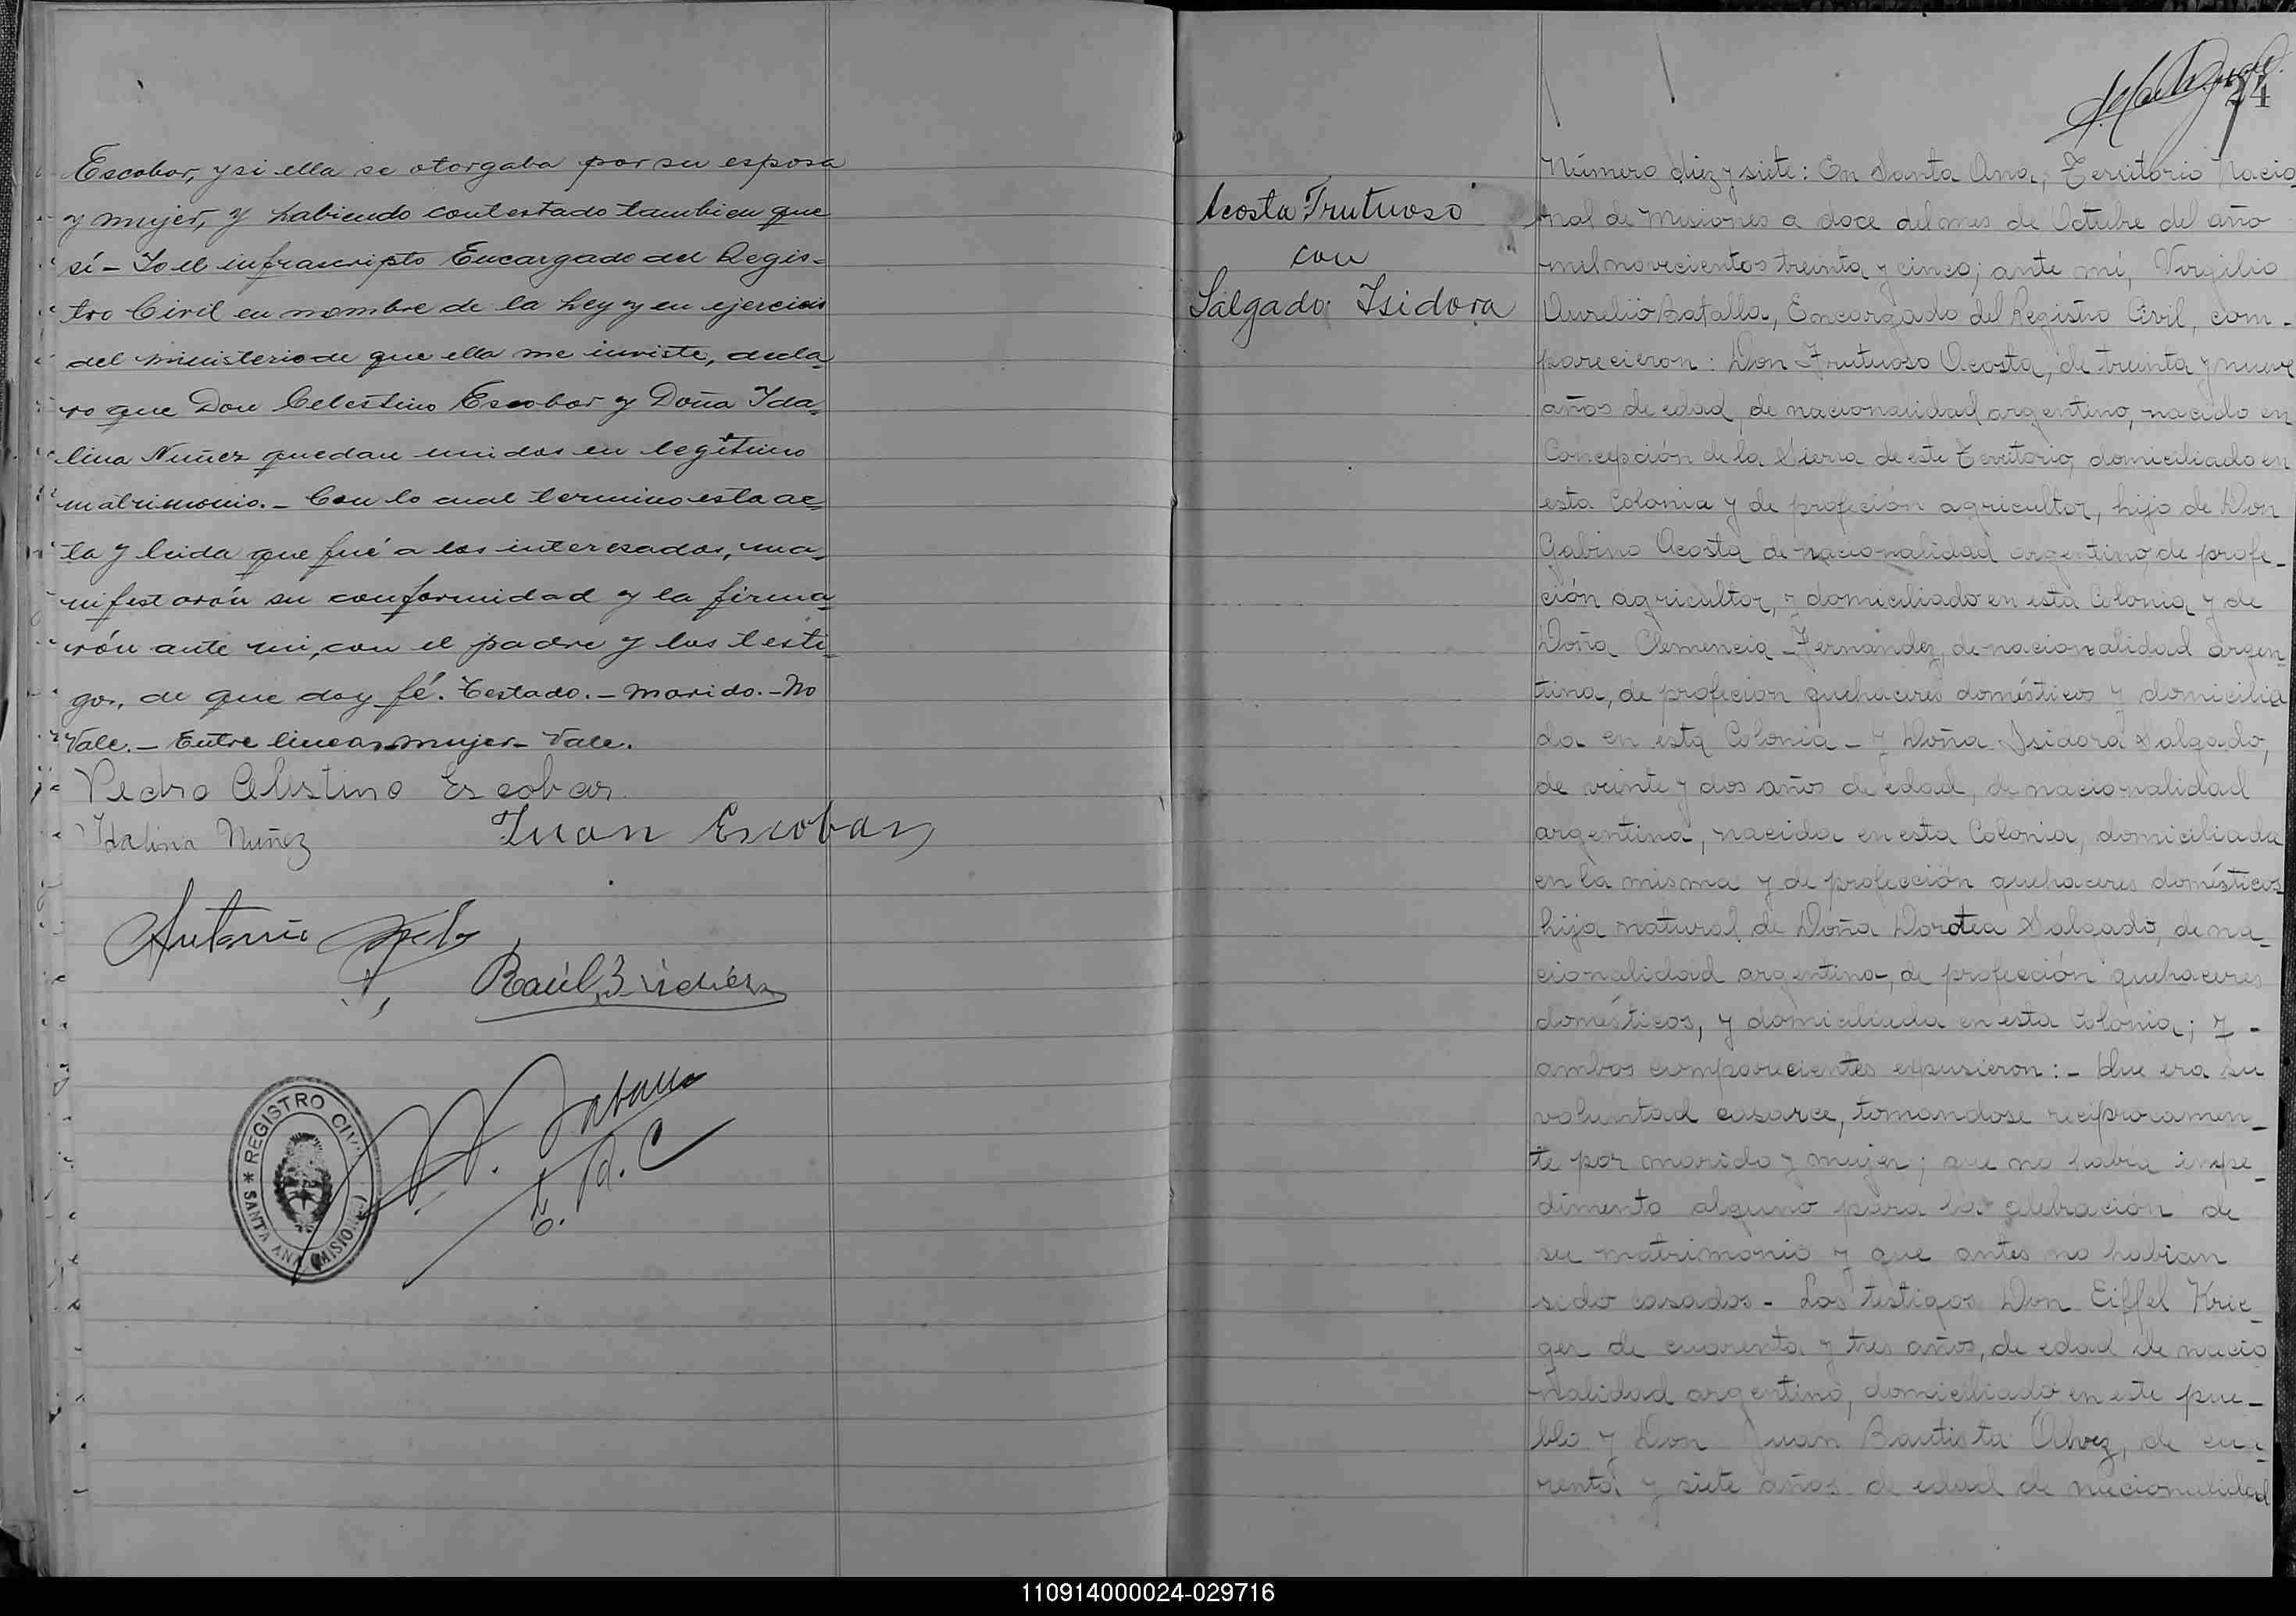 Escobar, y si ella se otorgaba por su esposa
y mujer, y habiendo contestado tambien que
sí - Yo el infrascripto Encargado del Regis-
tro Civil en nombre de la Ley y en ejercicio
del ministerio de que ella me inviste, decla-
ro que Don Celestino Escobar y Doña Ida-
lina Nuñez quedan unidos en legítimo
matrimonio. - Con lo cual termino esta ac-
ta y leida que fué a los interesados, ma-
nifestarón su conformidad y la firma-
rón ante mi, con el padre y los testi-
gos, de que doy fé. Testado. - marido. - No
Vale. - Entre lineas - mujer - Vale.
Pedro Celestino Escobar
Idalina Nuñez Juan Escobar
Antonio
Raúl
REGISTRO CIVIL
* SANTA ANA (MISIONES)
E. R. C
24
Acosta Frutuoso
con
Salgado Isidora
Número diez y siete: En Santa Ana, Territorio Nacio
nal de Misiones a doce del mes de Octubre del año
mil novecientos treinta y cinco; ante mí, Virgilio
Aurelio Batalla, Encargado del Registro Civil, com-
parecieron: Don Frutuoso Acosta, de treinta y nueve
años de edad, de nacionalidad argentino, nacido en
Concepción de la Sierra de este Territorio, domiciliado en
esta Colonia y de profeción agricultor, hijo de Don
Gabino Acosta de nacionalidad argentino, de profe-
ción agricultor, y domiciliado en esta Colonia y de
Doña Clemencia Fernandez, de nacionalidad argen-
tina, de profecion quehaceres domésticos y domicilia
da en esta Colonia - y Doña Isidora Salgado,
de veinte y dos años de edad, de nacionalidad
argentina, nacida en esta Colonia, domiciliada
en la misma y de profección quehaceres domésticos
hija natural de Doña Dorotea Salgado, de na-
cionalidad argentina, de profección quehaceres
domésticos, y domiciliada en esta Colonia; y -
ambos comparecientes expusieron: - Que era su
voluntad casarce, tomandose reciprocamen-
te por marido y mujer; que no había impe-
dimento alguno para la celebración de
su matrimonio y que antes no habian
sido casados - Los testigos Don Eiffel Krie-
ger de cuarenta y tres años, de edad de nacio
nalidad argentino, domiciliado en este pue-
blo y Don Juan Bautista Alvez, de cua-
renta y siete años de edad de nacionalidad
110914000024-029716